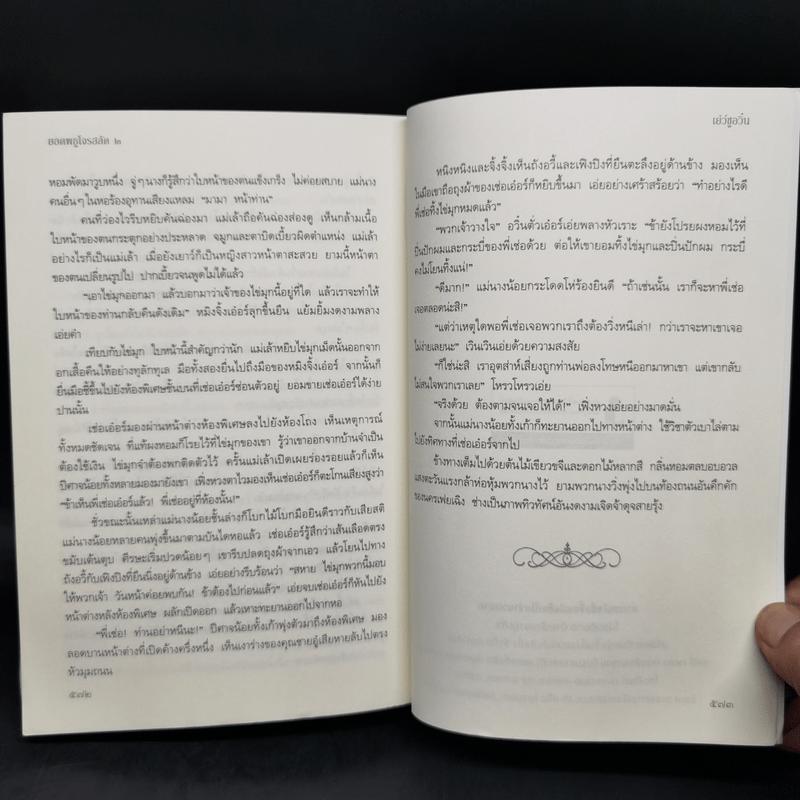 ยอดพธูโจรสลัด ๒
หอมพัดมาวูบหนึ่ง จู่ๆ นางก็รู้สึกว่าใบหน้าของตนแข็งเกร็ง ไม่ค่อยสบาย แม่นาง
คนอื่นๆ ในหอร้องอุทานเสียงแหลม “มามา หน้าท่าน”
คนที่ว่องไวรีบหยิบคันฉ่องมา แม่เล้าถือคันฉ่องส่องดู เห็นกล้ามเนื้อ
ใบหน้าของตนกระตุกอย่างประหลาด จมูกและตาบิดเบี้ยวผิดตำแหน่ง แม่เล้า
อย่างไรก็เป็นแม่เล้า เมื่อยังเยาว์ก็เป็นหญิงสาวหน้าตาสะสวย ยามนี้หน้าตา
ของตนเปลี่ยนรูปไป ปากเบี้ยวจนพูดไม่ได้แล้ว
“เอาไข่มุกออกมา แล้วบอกมาว่าเจ้าของไข่มุกนี้อยู่ที่ใด แล้วเราจะทำให้
ใบหน้าของท่านกลับคืนดังเดิม” หมิงจิ้งเอ๋อร์ลุกขึ้นยืน แย้มยิ้มงดงามพลาง
เอ่ยคำ
เทียบกับไข่มุก ใบหน้านี้สำคัญกว่านัก แม่เล้าหยิบไข่มุกเม็ดนั้นออกจาก
อกเสื้อคืนให้อย่างทุลักทุเล มือทั้งสองยื่นไปถึงมือของหมิงจิ้งเอ๋อร์ จากนั้นก็
ยื่นมือชี้ขึ้นไปยังห้องพิเศษชั้นบนที่เซ่อเอ๋อร์ซ่อนตัวอยู่ ยอมขายเซ่อเอ๋อร์ได้ง่าย
ปานนั้น
เซ่อเอ๋อร์มองผ่านหน้าต่างห้องพิเศษลงไปยังห้องโถง เห็นเหตุการณ์
ทั้งหมดชัดเจน ที่แท้ผงหอมก็โรยไว้ที่ไข่มุกของเขา รู้ว่าเขาออกจากบ้านจำเป็น
ต้องใช้เงิน ไข่มุกจำต้องพกติดตัวไว้ ครั้นแม่เล้าเปิดเผยร่องรอยแล้วก็เห็น
ปีศาจน้อยทั้งหลายมองมายังเขา เฟิ่งหวงตาไวมองเห็นเซ่อเอ๋อร์ก็ตะโกนเสียงสูงว่า
“ข้าเห็นพี่เซ่อเอ๋อร์แล้ว! พี่เซ่ออยู่ที่ห้องนั้น!”
ชั่วขณะนั้นเหล่าแม่นางน้อยชั้นล่างก็โบกไม้โบกมือยินดีราวกับเสียสติ
แม่นางน้อยหลายคนพุ่งขึ้นมาตามบันไดหอแล้ว เซ่อเอ๋อร์รู้สึกว่าเส้นเลือดตรง
ขมับเต้นตุบ ศีรษะเริ่มปวดน้อยๆ เขารีบปลดถุงผ้าจากเอว แล้วโยนไปทาง
ถังอวี้กับเฟิงปิงที่ยืนนิ่งอยู่ด้านข้าง เอ่ยอย่างรีบร้อนว่า “สหาย ไข่มุกพวกนี้มอบ
ให้พวกเจ้า วันหน้าค่อยพบกัน! ข้าต้องไปก่อนแล้ว” เอ่ยจบเซ่อเอ๋อร์ก็หันไปยัง
หน้าต่างหลังห้องพิเศษ ผลักเปิดออก แล้วเหาะทะยานออกไปจากหอ
“พี่เซ่อ! ท่านอย่าหนีนะ!” ปีศาจน้อยทั้งเก้าพุ่งตัวมาถึงห้องพิเศษ มอง
ลอดบานหน้าต่างที่เปิดค้างครึ่งหนึ่ง เห็นเงาร่างของคุณชายอู่เสียหายลับไปตรง
หัวมุมถนน
๕๗๒
เย่ว์ซูอวิ๋น
หนิงหนิงและจิ้งจิ้งเห็นถังอวี้และเฟิงปิงที่ยืนตะลึงอยู่ด้านข้าง มองเห็น
ในมือเขาถือถุงผ้าของเซ่อเอ๋อร์ก็หยิบขึ้นมา เอ่ยอย่างเศร้าสร้อยว่า “ทำอย่างไรดี
พี่เซ่อทิ้งไข่มุกหมดแล้ว”
“พวกเจ้าวางใจ” อวิ๋นตั่วเอ๋อร์เอ่ยพลางหัวเราะ “ข้ายังโปรยผงหอมไว้ที่
ปิ่นปักผมและกระบี่ของพี่เซ่อด้วย ต่อให้เขายอมทิ้งไข่มุกและปิ่นปักผม กระบี่
คงไม่โยนทิ้งแน่!”
“ดีมาก!” แม่นางน้อยกระโดดโห่ร้องยินดี “ถ้าเช่นนั้น เราก็จะหาพี่เซ่อ
เจอตลอดน่ะสิ!”
“แต่ว่าเหตุใดพอพี่เซ่อเจอพวกเราถึงต้องวิ่งหนีเล่า! กว่าเราจะหาเขาเจอ
ไม่ง่ายเลยนะ” เวินเวินเอ่ยด้วยความสงสัย
“ก็ใช่น่ะสิ เราอุตส่าห์เสี่ยงถูกท่านพ่อลงโทษหนีออกมาหาเขา แต่เขากลับ
ไม่สนใจพวกเราเลย” โหรวโหรวเอ่ย
“จริงด้วย ต้องตามจนเจอให้ได้!” เฟิ่งหวงเอ่ยอย่างมาดมั่น
จากนั้นแม่นางน้อยทั้งเก้าก็ทะยานออกไปทางหน้าต่าง ใช้วิชาตัวเบาไล่ตาม
ไปยังทิศทางที่เซ่อเอ๋อร์จากไป
ข้างทางเต็มไปด้วยต้นไม้เขียวขจีและดอกไม้หลากสี กลิ่นหอมตลบอบอวล
แสงตะวันแรงกล้าห่อหุ้มพวกนางไว้ ยามพวกนางวิ่งพุ่งไปบนท้องถนนอันคึกคัก
ของนครเฟยเฉิง ช่างเป็นภาพทิวทัศน์อันงดงามเจิดจ้าดุจสายรุ้ง
๕๗๓